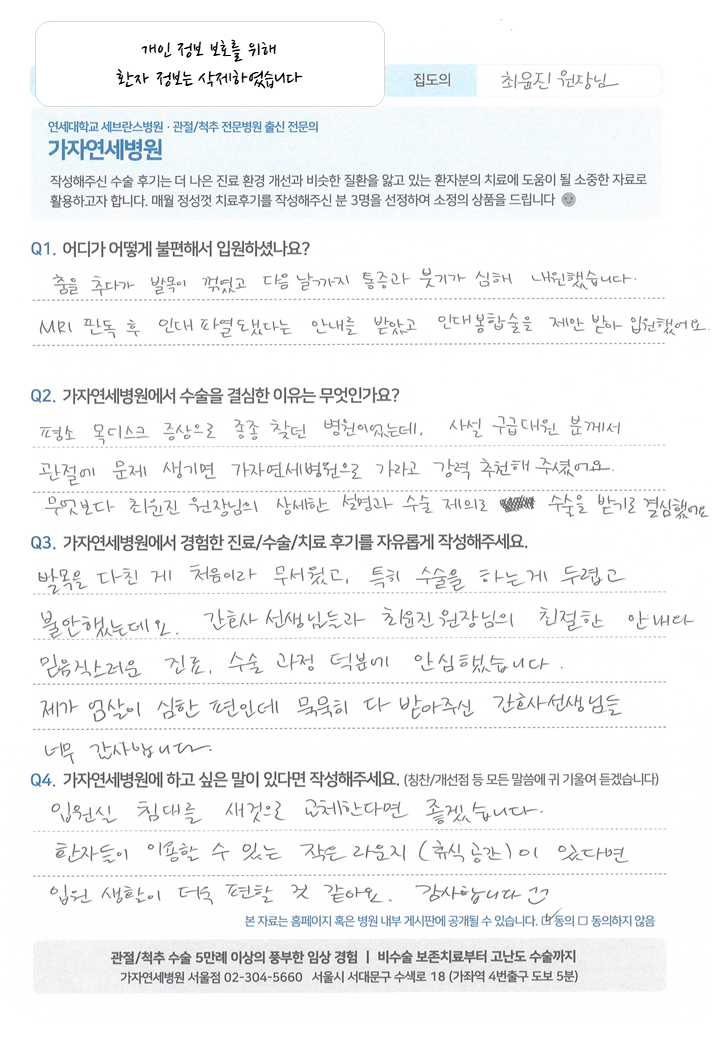 개인 정보 보호를 위해
환자 정보는 삭제하였습니다
집도의 최윤진 원장님
연세대학교 세브란스병원 · 관절/척추 전문병원 출신 전문의
가자연세병원
작성해주신 수술 후기는 더 나은 진료 환경 개선과 비슷한 질환을 앓고 있는 환자분의 치료에 도움이 될 소중한 자료로
활용하고자 합니다. 매월 정성껏 치료후기를 작성해주신 분 3명을 선정하여 소정의 상품을 드립니다
Q1. 어디가 어떻게 불편해서 입원하셨나요?
춤을 추다가 발목이 꺾였고 다음 날까지 통증과 붓기가 심해 내원했습니다.
MRI 판독 후 인대 파열 됐다는 안내를 받았고 인대봉합술을 제안 받아 입원했어요.
Q2. 가자연세병원에서 수술을 결심한 이유는 무엇인가요?
평소 목디스크 증상으로 종종 찾던 병원이었는데, 사설 구급대원 분께서
관절에 문제 생기면 가자연세병원으로 가라고 강력 추천해 주셨어요.
무엇보다 최윤진 원장님의 상세한 설명과 수술 제의로 수술을 받기로 결심했어요
Q3. 가자연세병원에서 경험한 진료/수술/치료 후기를 자유롭게 작성해주세요.
발목을 다친 게 처음이라 무서웠고, 특히 수술을 하는게 두렵고
불안했는데요. 간호사 선생님들과 최윤진 원장님의 친절한 안내와
믿음직스러운 진료, 수술 과정 덕분에 안심했습니다.
제가 엄살이 심한 편인데 묵묵히 다 받아주신 간호사선생님들
너무 감사합니다.
Q4. 가자연세병원에 하고 싶은 말이 있다면 작성해주세요. (칭찬/개선점 등 모든 말씀에 귀 기울여 듣겠습니다)
입원실 침대를 새것으로 교체한다면 좋겠습니다.
환자들이 이용할 수 있는 작은 라운지 (휴식 공간)이 있다면
입원 생활이 더욱 편할 것 같아요. 감사합니다
본 자료는 홈페이지 혹은 병원 내부 게시판에 공개될 수 있습니다. ☑ 동의 □ 동의하지 않음
관절/척추 수술 5만례 이상의 풍부한 임상 경험 | 비수술 보존치료부터 고난도 수술까지
가자연세병원 서울점 02-304-5660 서울시 서대문구 수색로 18 (가좌역 4번출구 도보 5분)